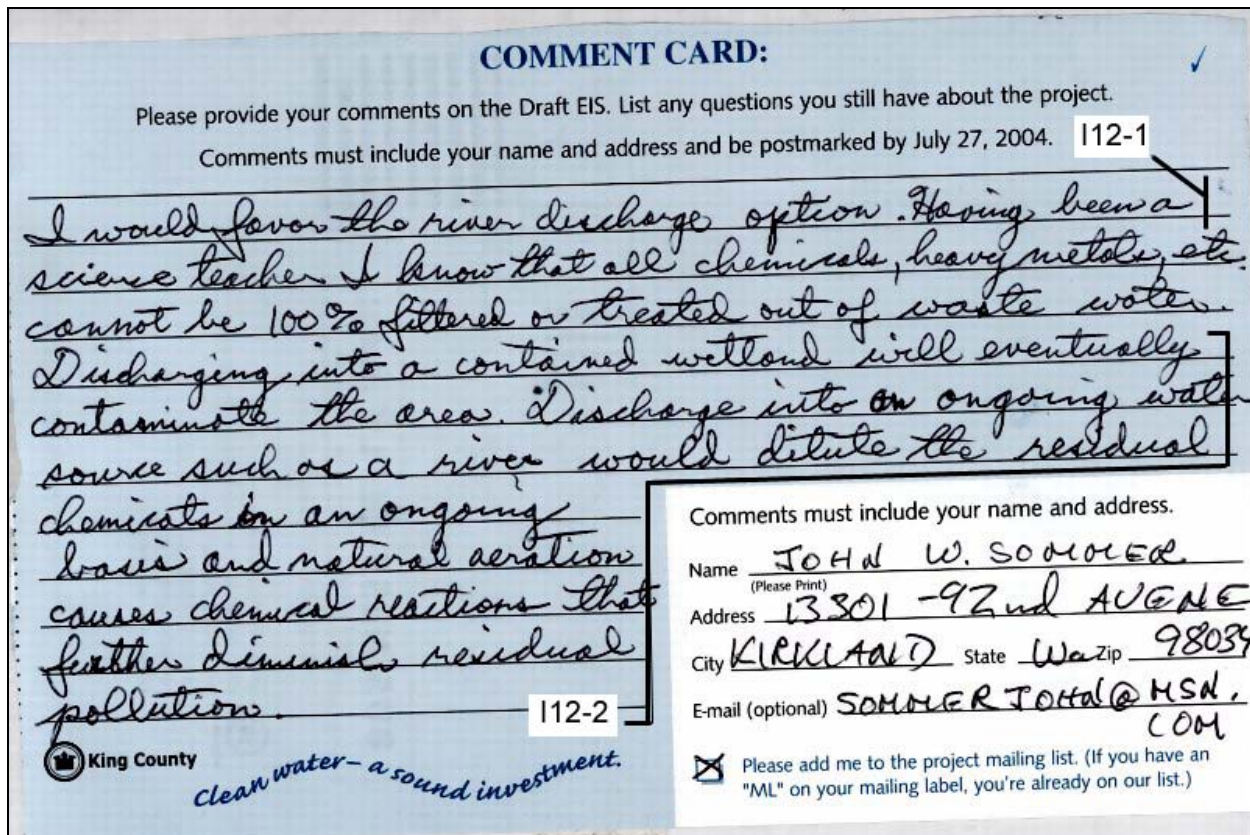 COMMENT CARD:
Please provide your comments on the Draft EIS. List any questions you still have about the project.
Comments must include your name and address and be postmarked by July 27, 2004.
I12-1
I would favor the river discharge option. Having been a
science teacher I know that all chemicals, heavy metals, etc.
cannot be 100% filtered or treated out of waste water.
Discharging into a contained wetland will eventually
contaminate the area. Discharge into an ongoing water
source such as a river would ditute the residual
chemicals in an ongoing
basis and natural aeration
causes chemical reactions that
further diminish residual
pollution.
I12-2
King County
Clean water – a sound investment.
Comments must include your name and address.
Name JOHN W. SOMMER
(Please Print)
Address 13301 - 92nd AVENE
City KIRKLAND State Wa Zip 98034
E-mail (optional) SOMMERJOHN@MSN.
COM
Please add me to the project mailing list. (If you have an
"ML" on your mailing label, you're already on our list.)